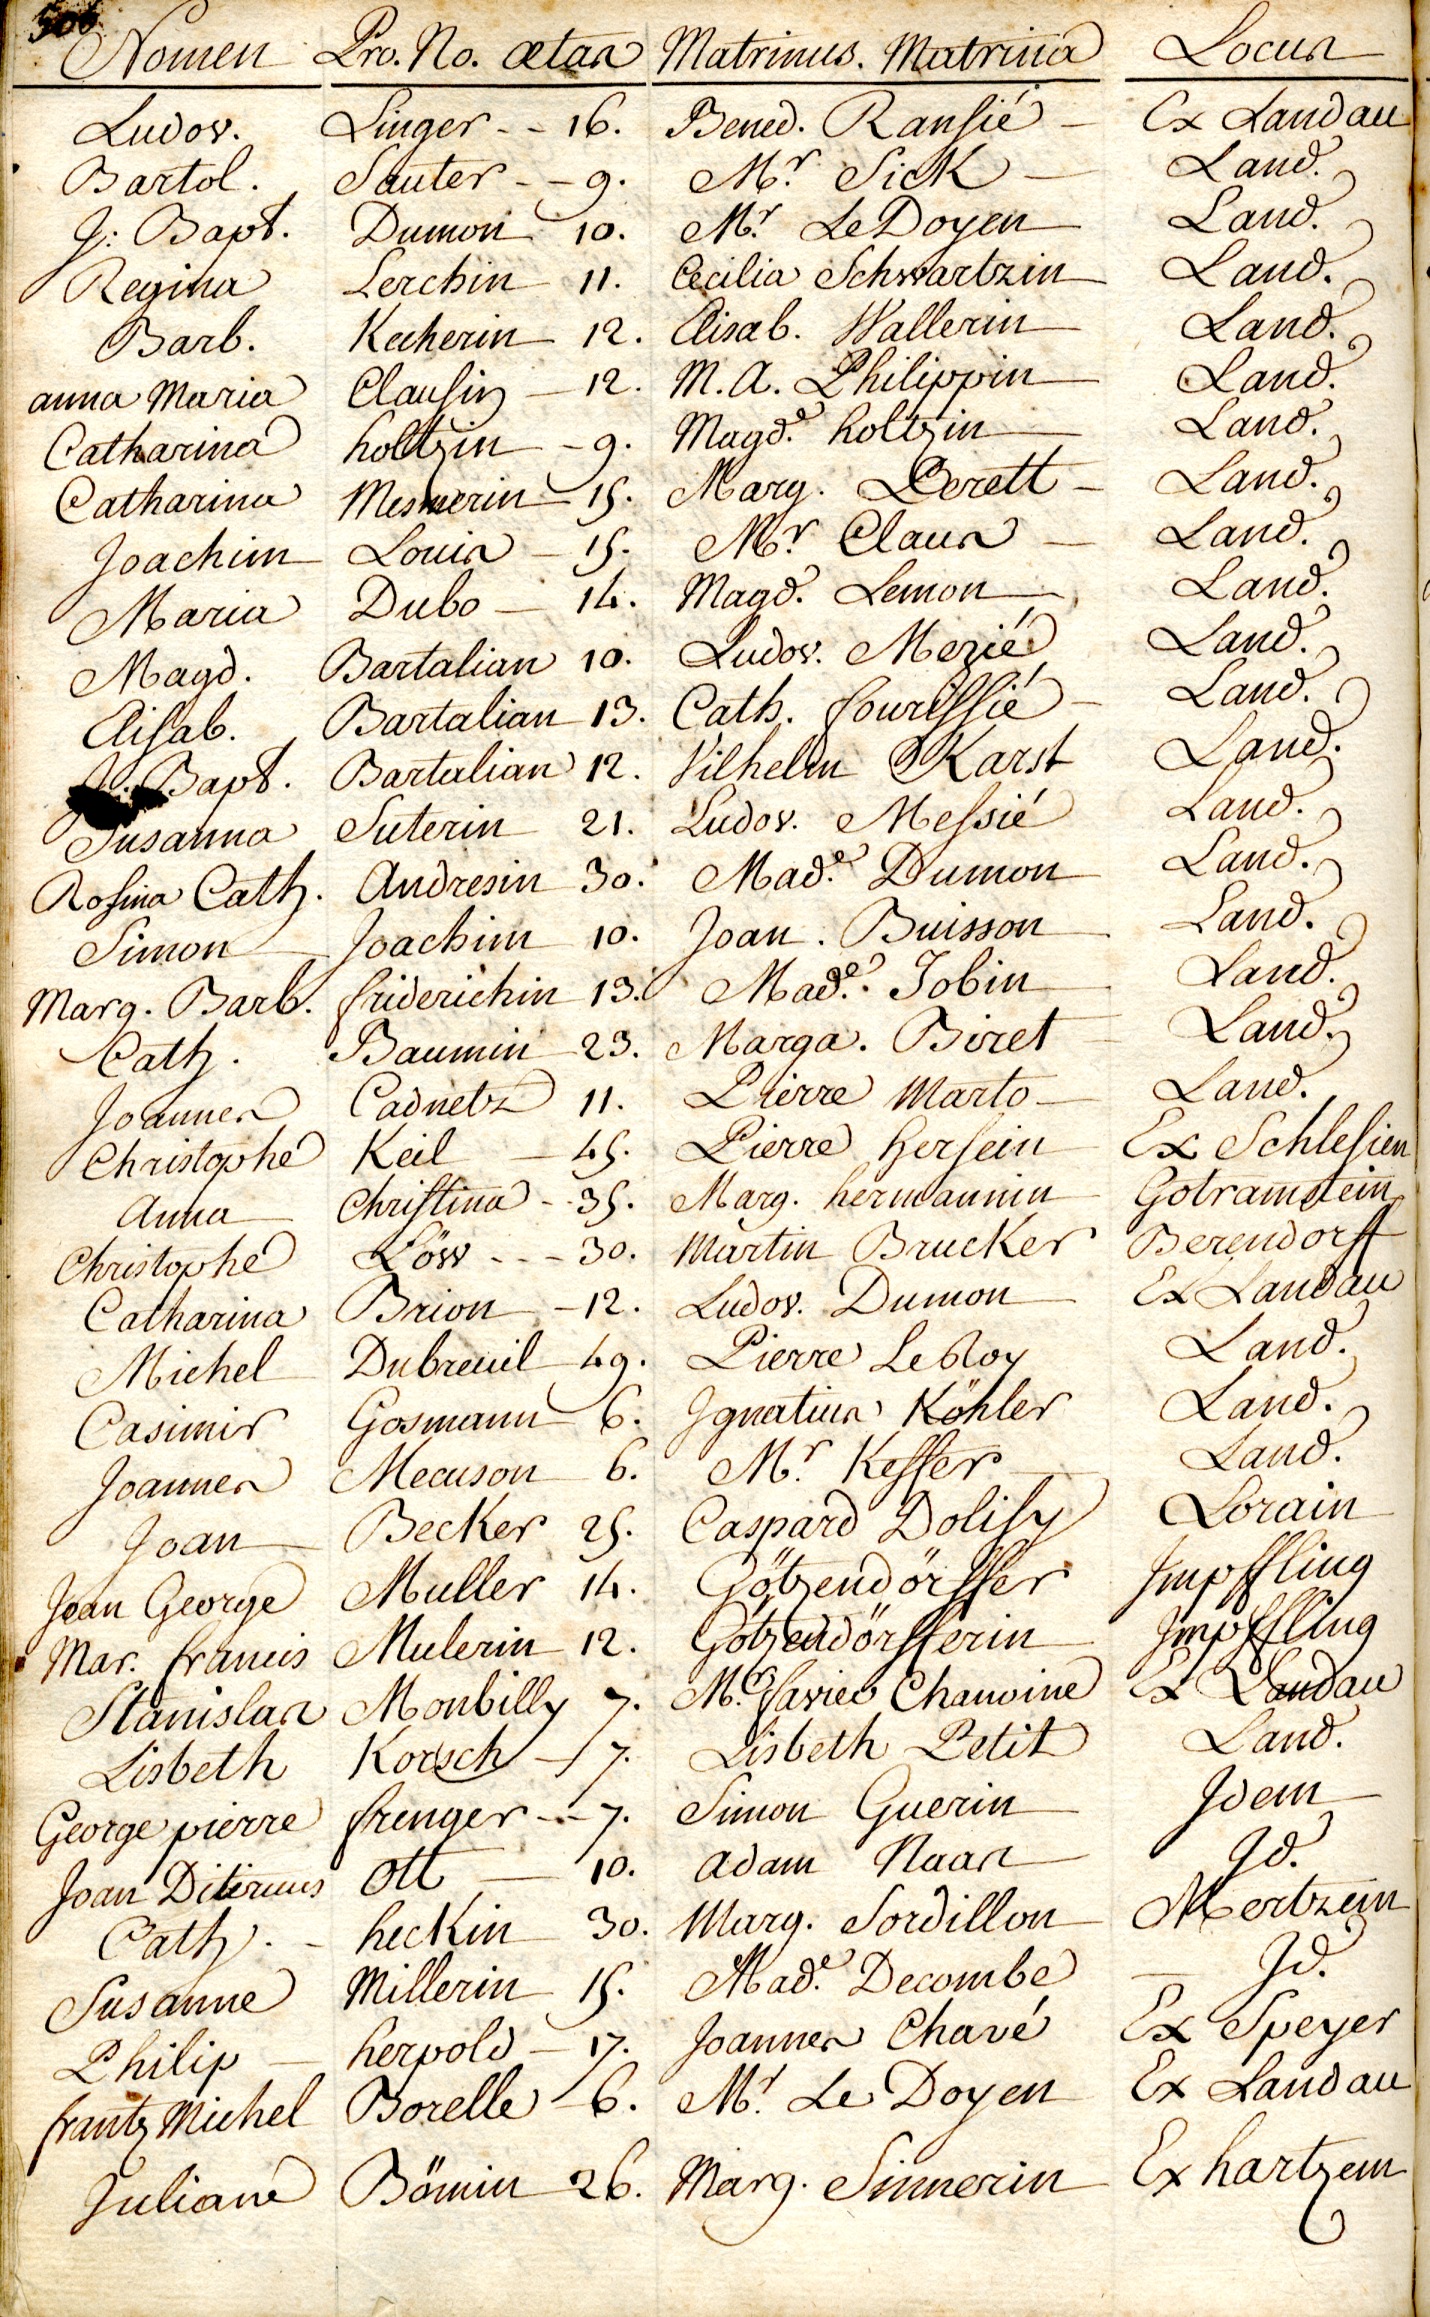 506
Nomen Pro. No. ætas Matrinus. Matrina Locus
Ludov. Linger - - 16. Bened. Ransié - Ex Landau
Bartol. Sauter - - 9. Mr. Sick - Land.
J: Bapt. Dumon 10. Mr. Le Doyen Land.
Regina Lerchin 11. Cecilia Schwartzin Land.
Barb. Kecherin 12. Elisab. Wallerin Land.
anna Maria Clausin - 12. M. A. Philippin Land.
Catharina holtzin - 9. Magd.e holtzin Land.
Catharina Mesmerin - 15. Marg. Berett - Land.
Joachim Louis - 15. Mr. Claus - Land.
Maria Dubo - 14. Magd. Lemon - Land.
Magd. Bartalian 10. Ludov. Mezié Land.
Elisab. Bartalian 13. Cath. fourissié - Land.
J: Bapt. Bartalian 12. Vilhelm Karst Land.
Susanna Suterin 21. Ludov. Messié Land.
Rosina Cath. Andresin 30. Mad.e Dumon Land.
Simon Joachim 10. Joan. Buisson Land.
Marg. Barb. friderichin 13. Mad.e Jobin Land.
Cath. Baumin 23. Marga. Biret Land.
Joannes Cadnetz 11. Pierre Marto - Land.
Christophe Keil - 45. Pierre hersein Ex Schlesien
Anna Christina - 35. Marg. hermannin Gotramstein
Christophe Löw - - - 30. Martin Brucker Berendorff
Catharina Brion - 12. Ludov. Dumon Ex Landau
Michel Dubreuil 49. Pierre Le Roy Land.
Casimir Gosmann 6. Ignatius Köhler Land.
Joannes Mecuson 6. Mr. Keffer Land.
Joan Becker 25. Caspard Dolisy Lorain
Jean George Muller 14. Götzendörffer Impffling
Mar. francis Mulerin 12. Götzendörfferin Impffling
Stanislas Monbilly 7. Mr. Chanoine Ex Landau
Lisbeth Korsch - 7. Lisbeth Petit Land.
George pierre frenger - - 7. Simon Guerin Idem
Joan Ott - 10. adam Naas Id.
Cath. - heckin 30. Marg. Sordillon Mertzem
Susanne Millerin 15. Mad.e Decombe - Id.
Philip - herpold - 17. Joannes Chavé Ex Speyer
frantz Michel Borelle - 6. Mr. Le Doyen Ex Landau
Juliane Bömin 26. Marg. Sinnerin Ex hartzem